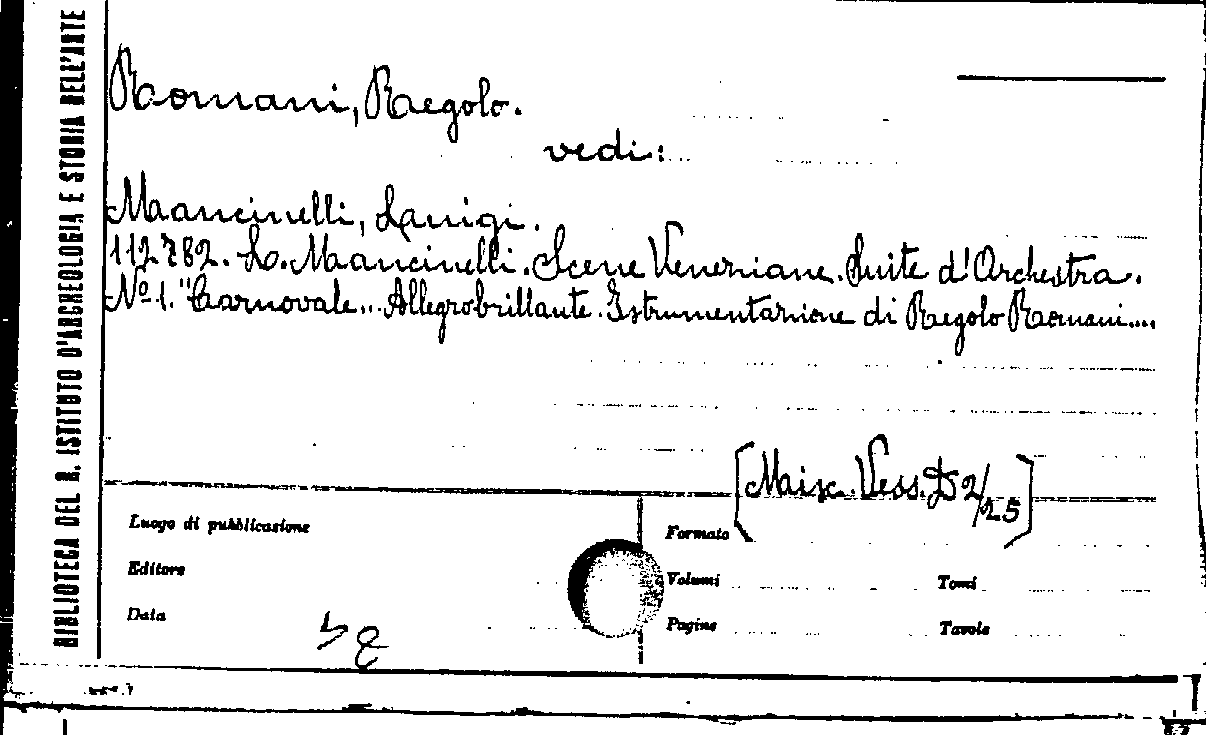 BIBLIOTECA DEL R. ISTITUTO D'ARCHEOLOGIA E STORIA DELL'ARTE
Romani, Regolo.
vedi:
Mancinelli, Luigi.
112782. L. Mancinelli. Scene Veneziane. Suite d'Orchestra.
Nº 1. "Carnovale". Allegro brillante. Istrumentazione di Regolo Romani....
[Misc. Vess. D 2/25]
Luogo di pubblicazione
Formato
Editore
Volumi
Tomi
Data
Pagine
Tavole